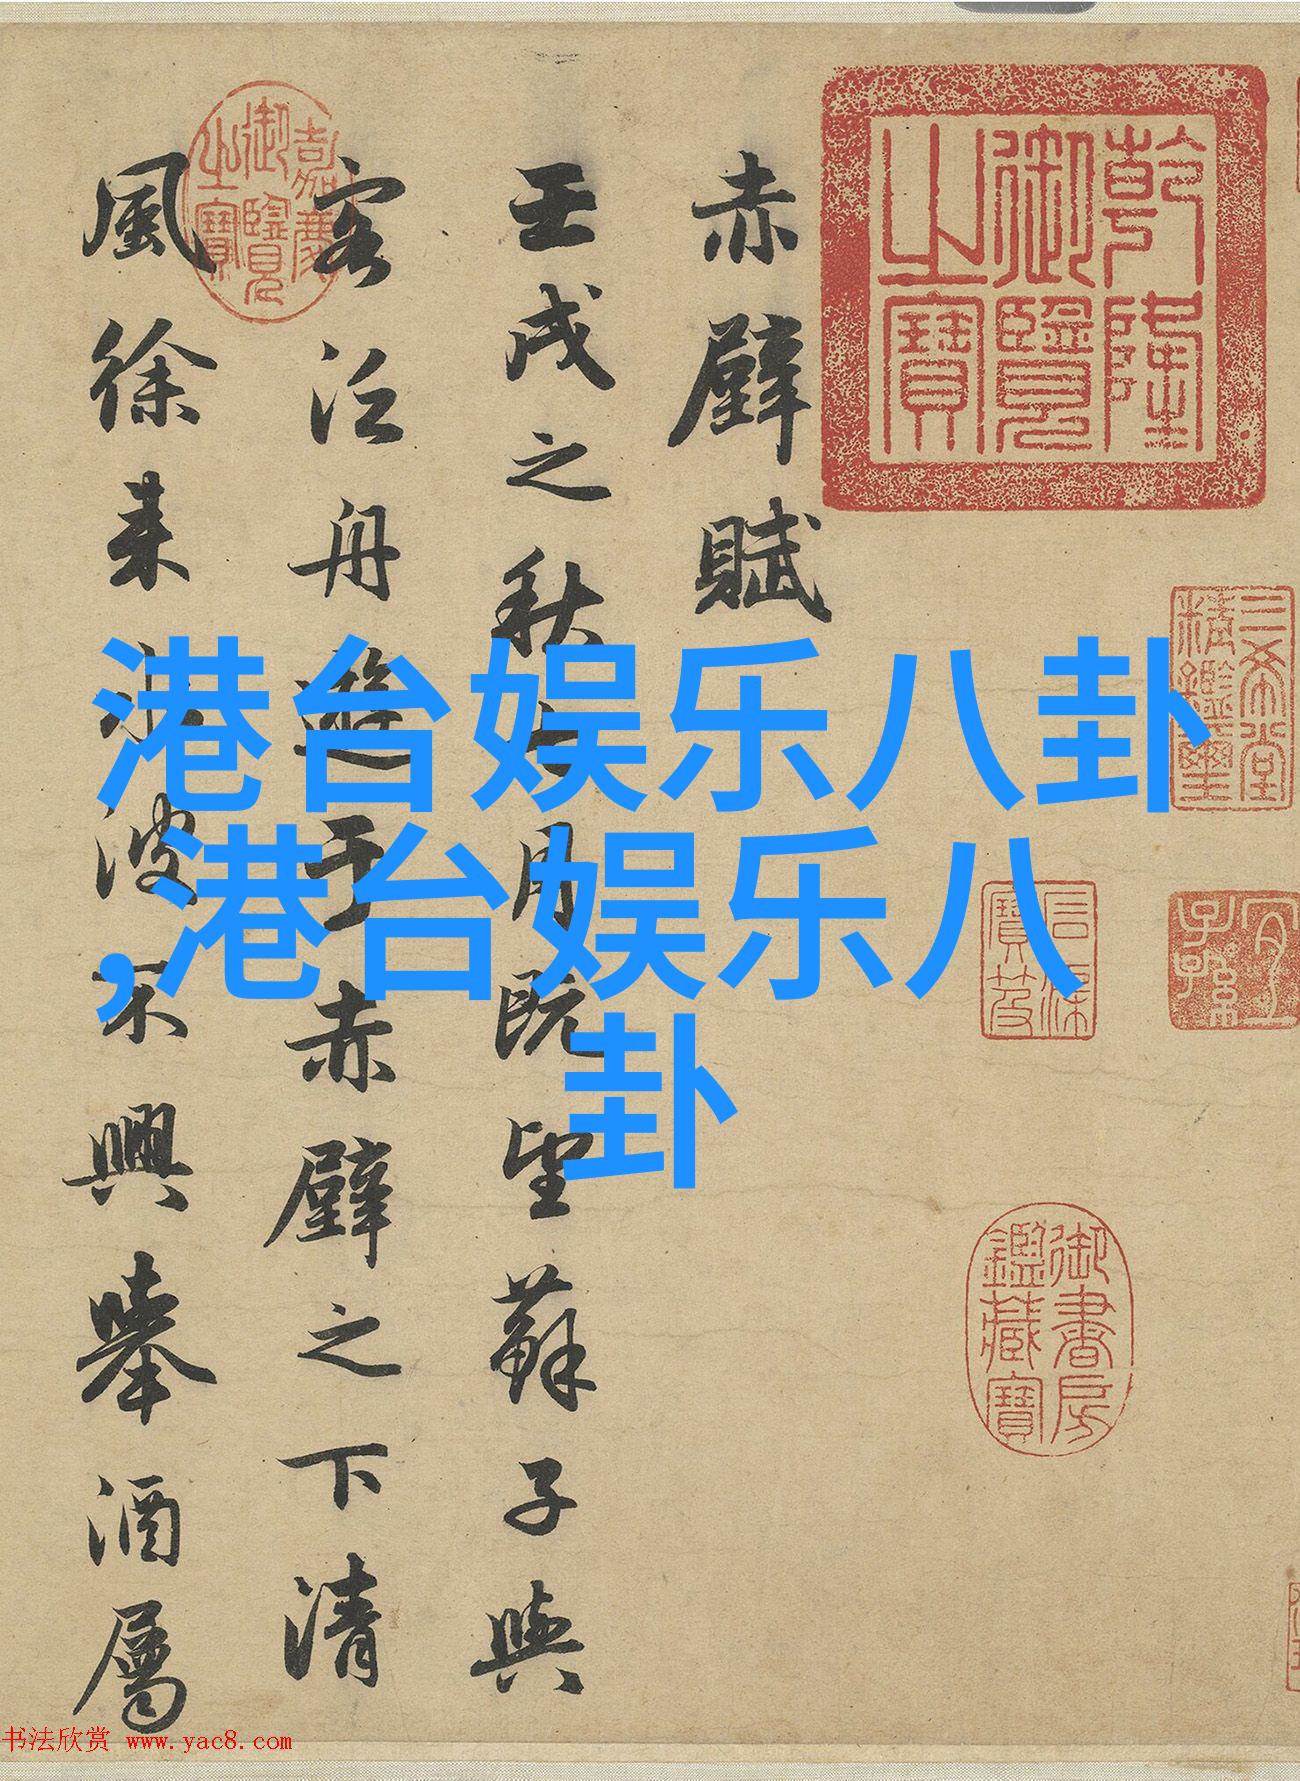 港台娱乐八卦
,港台娱乐八
卦
乾隆
御覽
之寶
三希堂
精鑑璽
宜
子孫
石渠
寶笈
御書房
鑑藏寶
赤壁賦
壬戌之秋七月既望蘇子與
客泛舟遊于赤壁之下清
風徐來水波不興舉酒屬
嘉慶
御覽
之寶
书法欣赏 www.yac8.com